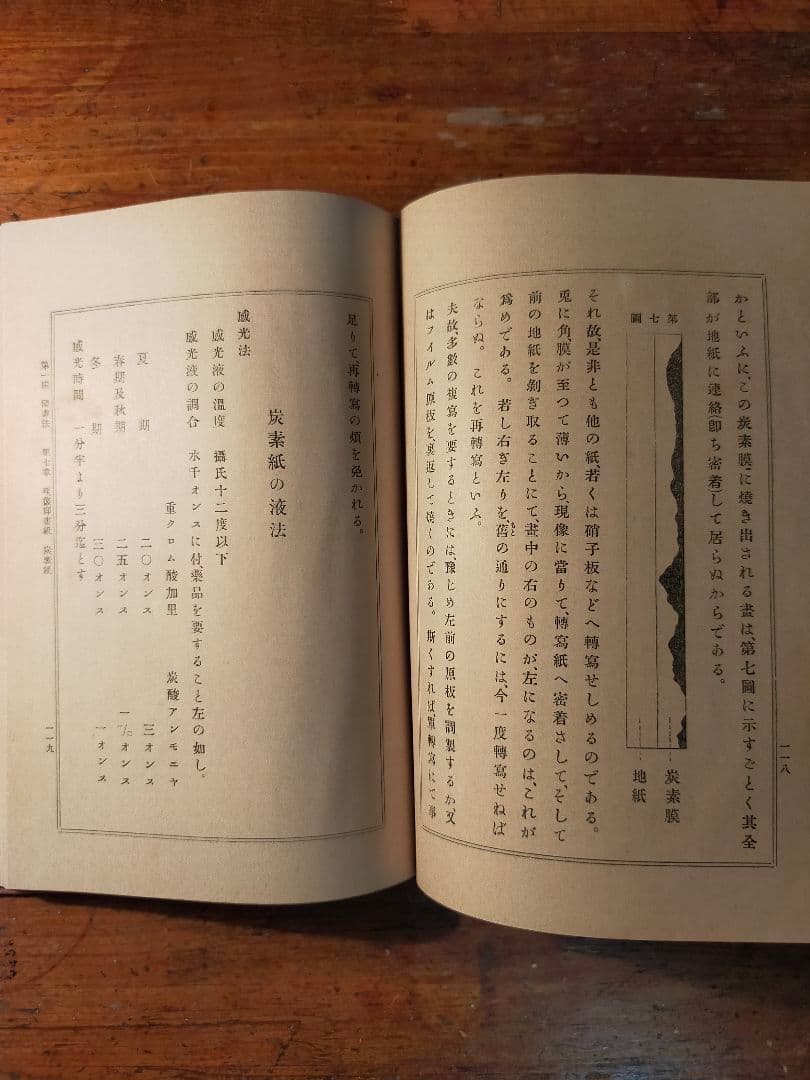 一一八
かといふに、この炭素膜に焼き出される畫は、第七圖に示すごとく其全
部が地紙に連絡(即ち密着)して居らぬからである。
第七圖
炭素膜
地紙
それ故、是非とも他の紙、若くは硝子板などへ轉寫せしめるのである。
兎に角、膜が至つて薄いから、現像に當りて、轉寫紙へ密着さして、そして
前の地紙を剝ぎ取ることにて、畫中の右のものが、左になるのは、これが
爲めである。若し右ぎ左りを、舊の通りにするには、今一度轉寫せねば
もと
ならぬ。これを再轉寫といふ。
夫故、多數の複寫を要するときには、豫じめ左前の原板を調製するか、又
はフイルム原板を、裏返して焼くのである。斯くすれば、單轉寫にて事
足りて、再轉寫の煩を免かれる。
炭素紙の液法
感光法
感光液の溫度 攝氏十二度以下
感光液の調合 水千オンスに付、藥品を要すること左の如し。
重クロム酸加里 炭酸アンモニヤ
夏期 二〇オンス 三オンス
春期及秋期 二五オンス 一½オンス
冬期 三〇オンス 一オンス
感光時間 一分半より三分迄とす
第七章 炭素紙
一一九